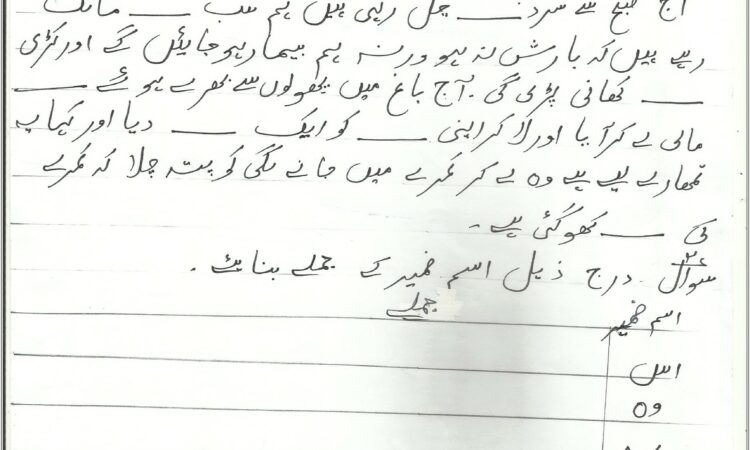 آج صبح سے سرد ____ چل رہی ہیں ہم سب ____ مانگ
رہے ہیں کہ بارش نہ ہو ورنہ ہم بیمار ہو جائیں گے اور کڑی
____ کھانی پڑی گی. آج باغ میں پھولوں سے بھرے ہوئے ____
مالی لے کر آیا اور لا کر اپنی ____ کو ایک ____ دیا اور کہا یہ
تمھارے لیے ہے وہ لے کر کمرے میں جانے لگی کو پتہ چلا کہ کمرے
کی ____ کھو گئی ہے۔
سوال ۲ درج ذیل اسم ضمیر کے جملے بنایئے۔
اسم ضمیر جملے
اس
وہ